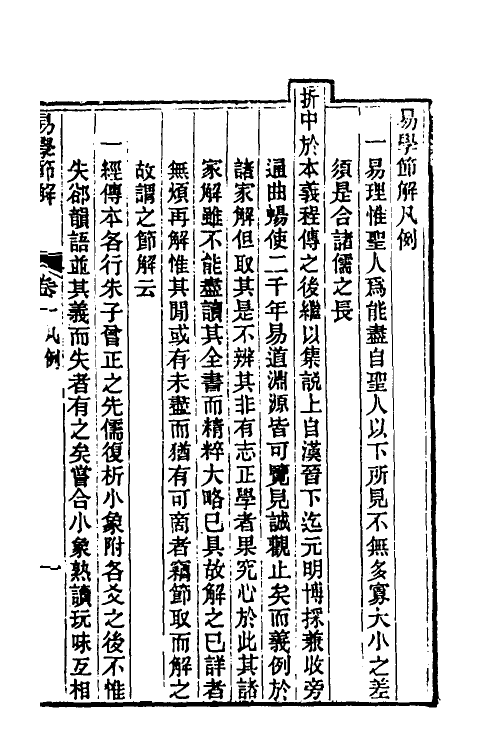 易學節解凡例
一易理惟聖人爲能盡自聖人以下所見不無多寡大小之差
須是合諸儒之長
折中於本義程傳之後繼以集説上自漢晉下迄元明博採兼收旁
通曲暢使二千年易道淵源皆可覽見誠觀止矣而義例於
諸家解但取其是不辨其非有志正學者果究心於此其諸
家解雖不能盡讀其全書而精粹大略已具故解之已詳者
無煩再解惟其閒或有未盡而猶有可商者竊節取而解之
故謂之節解云
一經傳本各行朱子曾正之先儒復析小象附各爻之後不惟
失郤韻語並其義而失者有之矣嘗合小象熟讀玩味互相
易學節解
卷一凡例
一